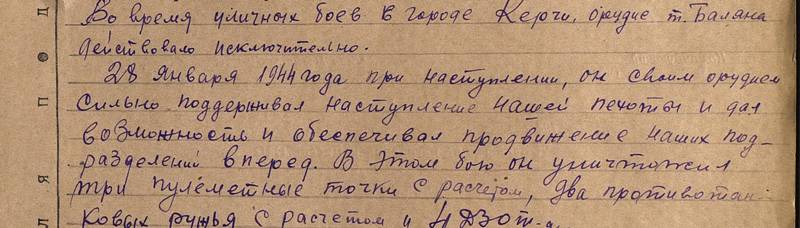 Во время уличных боев в городе Керчи, орудие т. Баляна
действовало исключительно.
28 января 1944 года при наступлении, он своим орудием
сильно поддерживал наступление нашей пехоты и дал
возможность и обеспечивал продвижение наших под-
разделений вперед. В этом бою он уничтожил
три пулеметные точки с расчетом, два противотан-
ковых ружья с расчетом и 4 ДЗОТ-а
Д
О
П
Я
Л